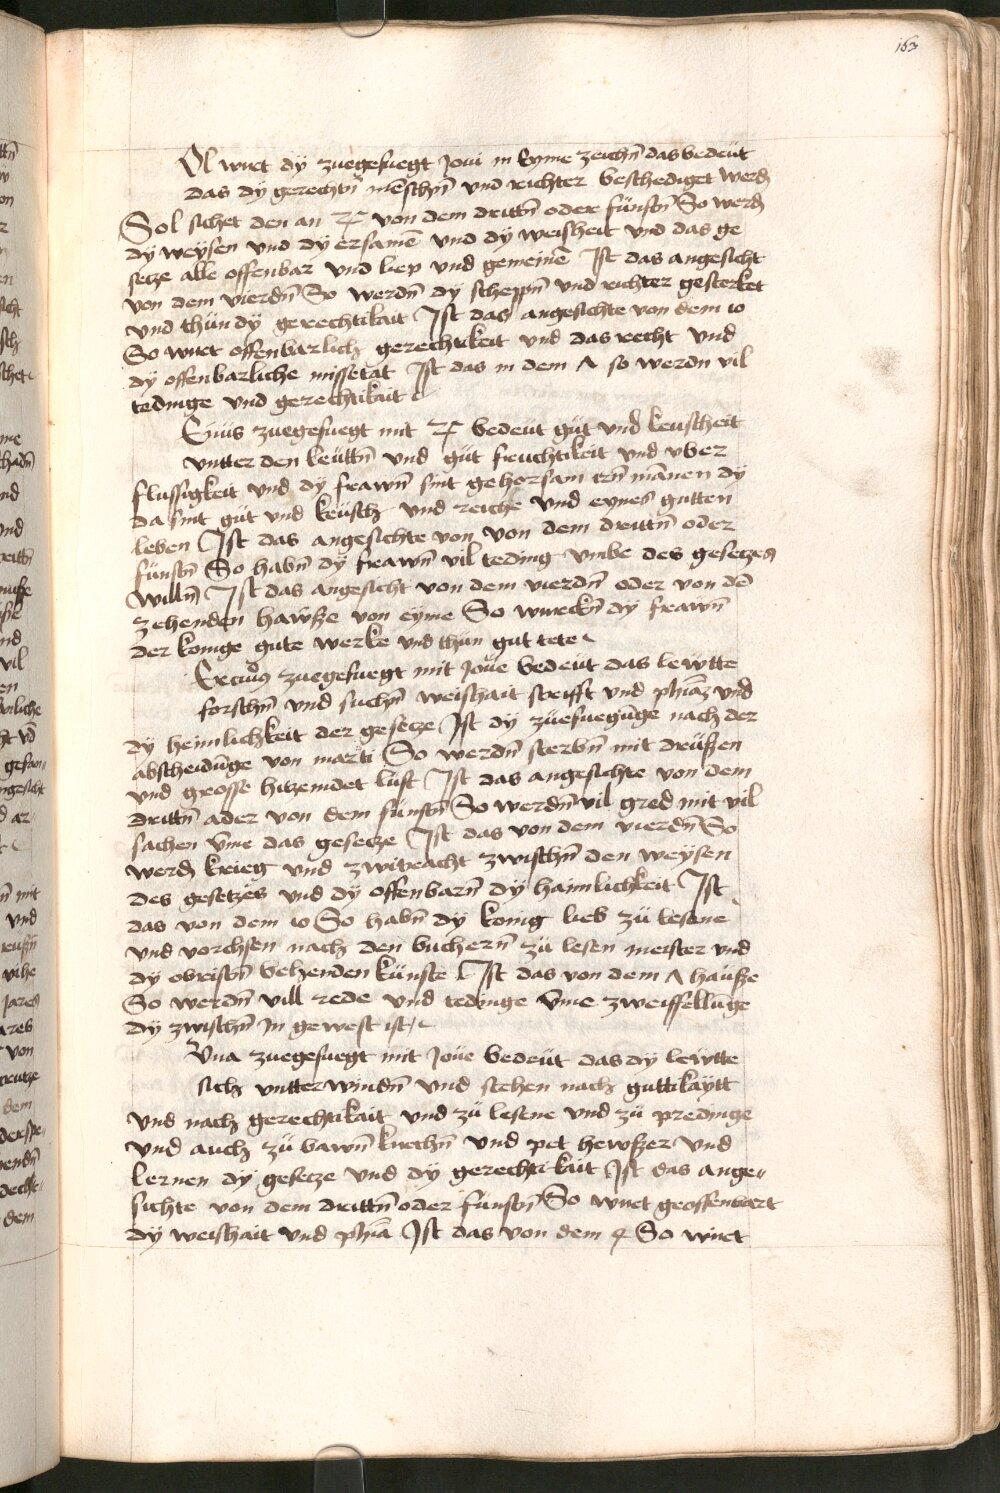 163
Ol wirt dÿ zuegefuegt Joui in Eyme zeichñ das bedeüt
das dÿ gerechtñ mēschñ vnd richter beschediget werdñ
Sol sichet den an ♃ von dem drittñ oder fünftñ So werdñ
dÿ weÿsen vnd dÿ ersamē vnd dÿ weisheit vnd das ge
setze alle offenbar vnd liep vnd gemeinē Ist das angesicht
von dem vierdñ So werdñ dÿ scheppñ vnd richter gesterket
vnd thün dÿ gerechtikait Ist das angesichte von dem 10
So wirt offenbarlich gerechtikeit vnd das recht vnd
dÿ offenbarliche missetat Ist das in dem Λ so werdn vil
tedinge vnd gerechtikait
Enus zuegefuegt mit ♃ bedeut güt vnd keuscheit
vntter den leüttñ vnd güt fruchtikeit vnd vber
flussigkeit vnd dÿ frawñ sint gehorsam irñ mānen dÿ
da sint güt vnd keüsch vnd reiche vnd eynes gutten
leben Ist das angesichte von von dem drittñ oder
fünftñ So habñ dÿ frawñ vil teding vmbe des gesetzes
willñ Ist das angesicht von dem vierdñ oder von dē
zehenden hawsze von eyme So wurckñ dÿ frawñ
der konige gute werke vnd thun gut tete
Ercurius zuegefuegt mit Joue bedeüt das lewtte
forschñ vnd suchñ weishait scrifft vnd phiaz vnd
dÿ heimlichkeit der gesetze Ist dÿ züefuegūge nach der
abscheidūge von marti So werdñ sterbñ mit drüszen
vnd grosse hitzendet luft Ist das angesichte von dem
drittñ ader von dem fünftñ So werdñ vil gred mit vil
sachen vme das gesetze Ist das von dem vierdñ So
werdñ krieg vnd zwitracht zwischñ den weÿsen
des gesetzes vnd dÿ offenbarñ dÿ haimlichkeit Ist
das von dem 10 So habñ dÿ konig lieb zü lesene
vnd vorchsen nach den buchern̄ zü lesen meister vnd
dÿ obristñ behenden künste Ist das von dem Λ hausze
So werdñ vill rede vnd tedinge vme zweiffelluge
dÿ zwischñ in gewest ist
Vna zuegefuegt mit Joue bedeüt das dÿ lewtte
sich vntterwindñ vnd stehen nach guttikaÿtt
vnd nach gerechtikait vnd zü lesene vnd zü predinge
vnd auch zü bawñ kirchñ vnd pet hewszer vnd
lernen dÿ gesetze vnd dÿ gerechtikait Ist das ange
sichte von dem drittñ oder fünftñ So wirt geoffenbart
dÿ weishait vnd phia Ist das von dem 4 So wirt